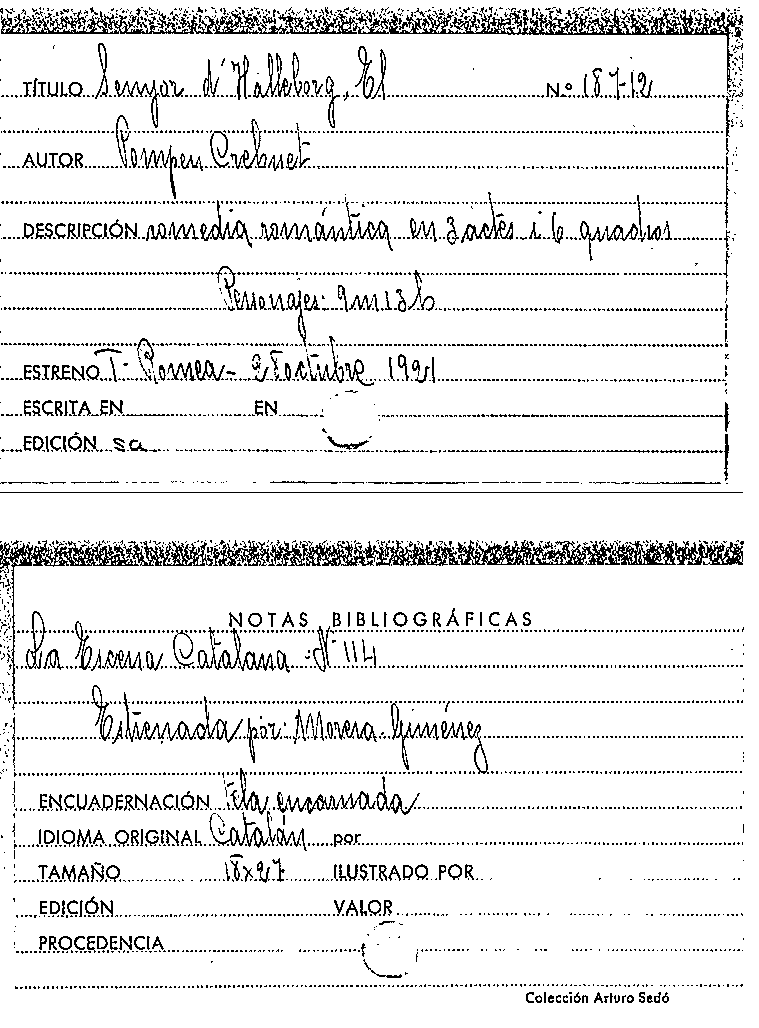 TÍTULO Senyor d'Halleborg, El Nº 187-12
AUTOR Pompeu Crehuet
DESCRIPCIÓN comedia romántica en 3 actes i 6 quadros
Personajes: 9 m 13 h
ESTRENO T. Romea - 28 octubre 1921
ESCRITA EN EN
EDICIÓN sa
NOTAS BIBLIOGRÁFICAS
La Escena Catalana - Nº 114
Estrenada por: Morera - Giménez
ENCUADERNACIÓN Tela encarnada
IDIOMA ORIGINAL Catalán por
TAMAÑO 18x27 ILUSTRADO POR
EDICIÓN VALOR
PROCEDENCIA
Colección Arturo Sedó